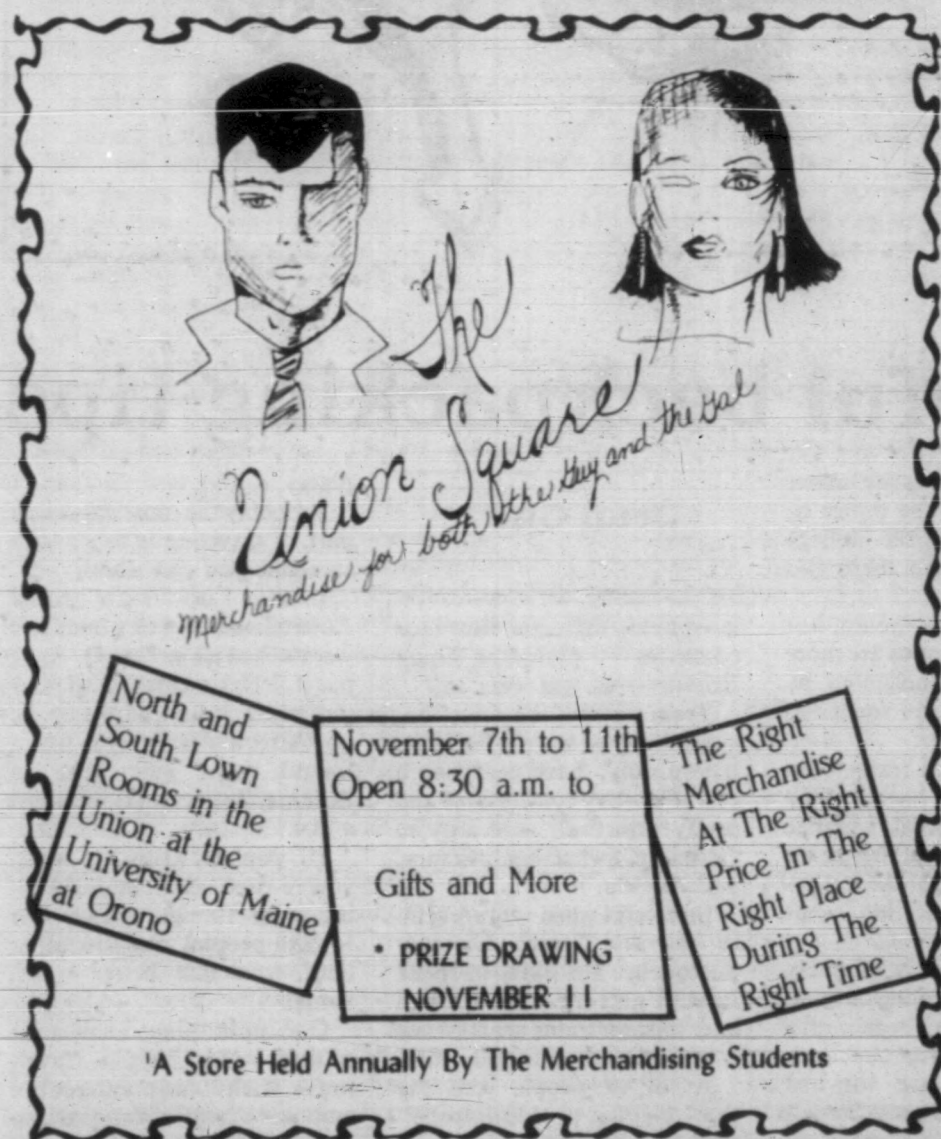 The
Union Square
Merchandise for both the Guy and the Gal
North and
South Lown
Rooms in the
Union at the
University of Maine
at Orono
November 7th to 11th
Open 8:30 a.m. to
Gifts and More
* PRIZE DRAWING
NOVEMBER 11
The Right
Merchandise
At The Right
Price In The
Right Place
During The
Right Time
'A Store Held Annually By The Merchandising Students